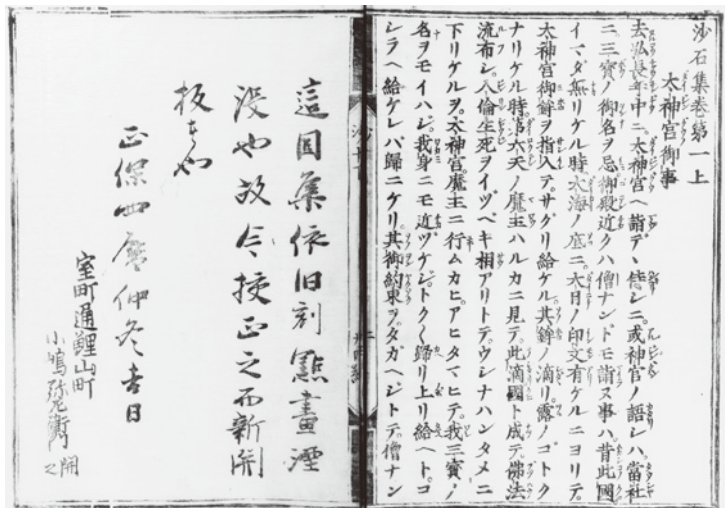 沙石集卷第一上
太神宮御事
去弘長年中ニ。太神宮ヘ詣デヽ侍シニ。或神官ノ語シハ。當社
ニ。三寶ノ御名ヲ忌御殿近クハ僧ナンドモ詣ヌ事ハ。昔此國
イマダ無リケル時。大海ノ底ニ。大日ノ印文有ケルニヨリテ。
太神宮御鉾ヲ指入テ。サグリ給ケル。其鉾ノ滴リ。露ノゴトク
ナリケル時。第六天ノ魔王ハルカニ見テ。此滴國ト成テ。佛法
流布シ。人倫生死ヲイヅベキ相アリトテ。ウシナハンタメニ
下リケルヲ。太神宮。魔王ニ行ムカヒ。アヒタマヒテ。我三寶ノ
名ヲモイハジ。我身ニモ近ヅケジ。トク〱歸リ上リ給ヘト。コ
シラヘ給ケレバ歸ニケリ。其御約束ヲ。タガヘジトテ。僧ナン
這因集依旧刻點畫湮
没也故今挍正之而新開
板者也
正保四歴仲冬吉日
室町通鯉山町
小嶋弥左衛門開之